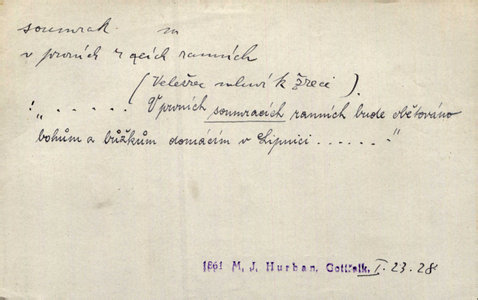 soumrak m
v prvních ranních
(Velešrec mluví k žreci).
: „ . . . . . . V prvních soumracích ranních bude obětováno
bohům a bůžkům domácím v Lipnici . . . . . . "
1861 M. J. Hurban, Gottšalk. I - 23. 28